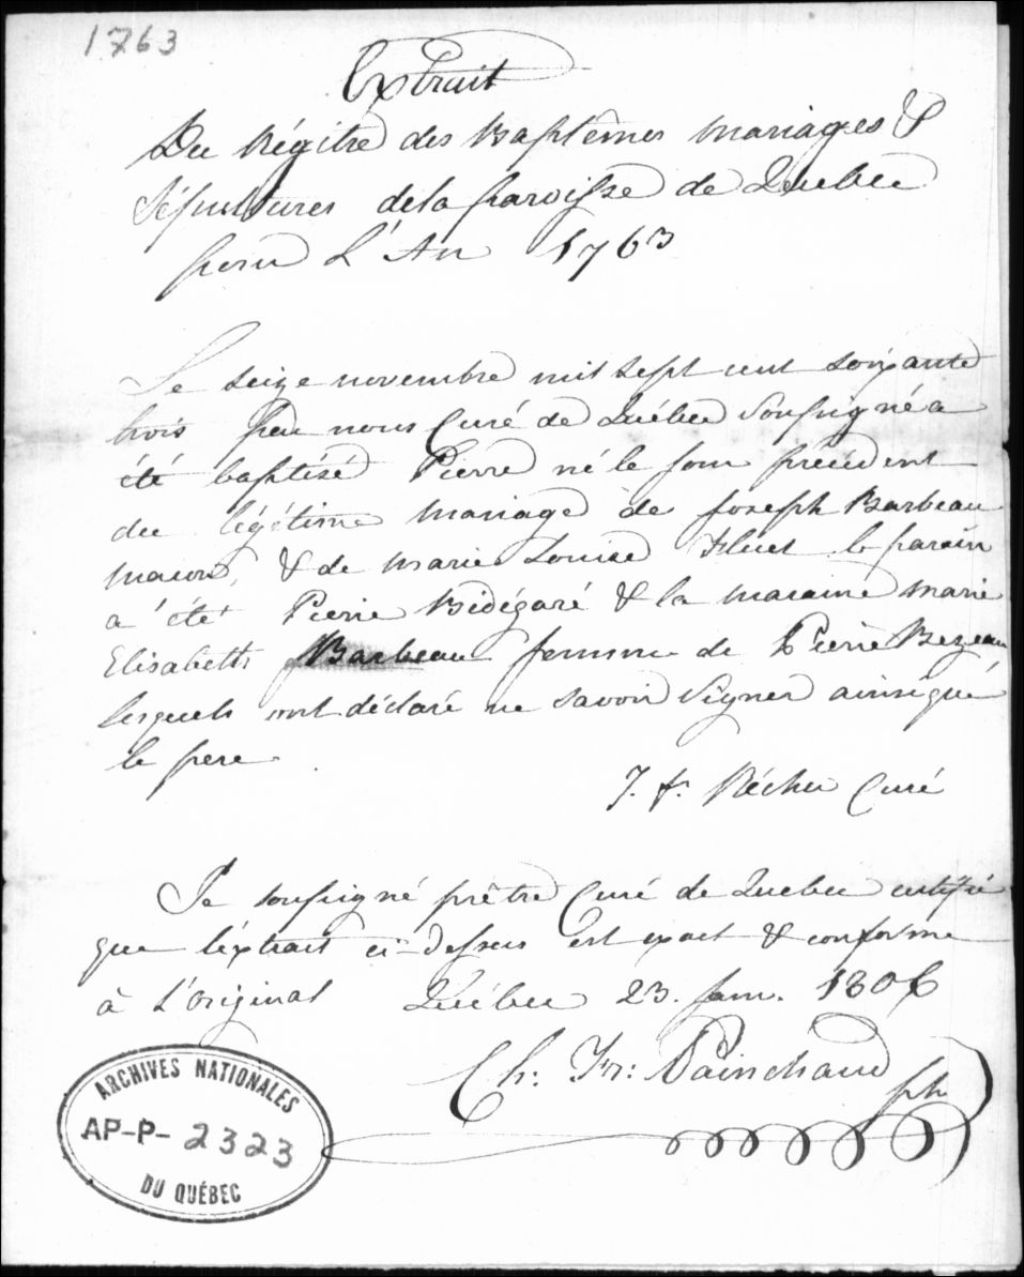 1763
Extrait
Du Régitre des Baptêmes Mariages &
Sépultures dela paroisse de Quebec
pour L'An 1763
Le seize novembre mil sept cent soixante
trois par nous Curé de Québec Soussigné a
été baptisé Pierre né le jour précédent
du légitime Mariage de Joseph Barbeau
macon, & de Marie Louise Fluet le parain
a été Pierre Bidégaré & la maraine Marie
Elisabeth Barbeau femme de Pierre Bezeau
lesquels ont déclaré ne savoir Signer ainsi que
le pere
J. F. Récher Curé
Je soussigné prêtre Curé de Quebec certifie
que l'éxtrait ci-dessus est exact & conforme
à L'Original Québec 23. Janv. 1806
Ch: Fr: Painchaud ptr
ARCHIVES NATIONALES
AP-P-2323
DU QUÉBEC